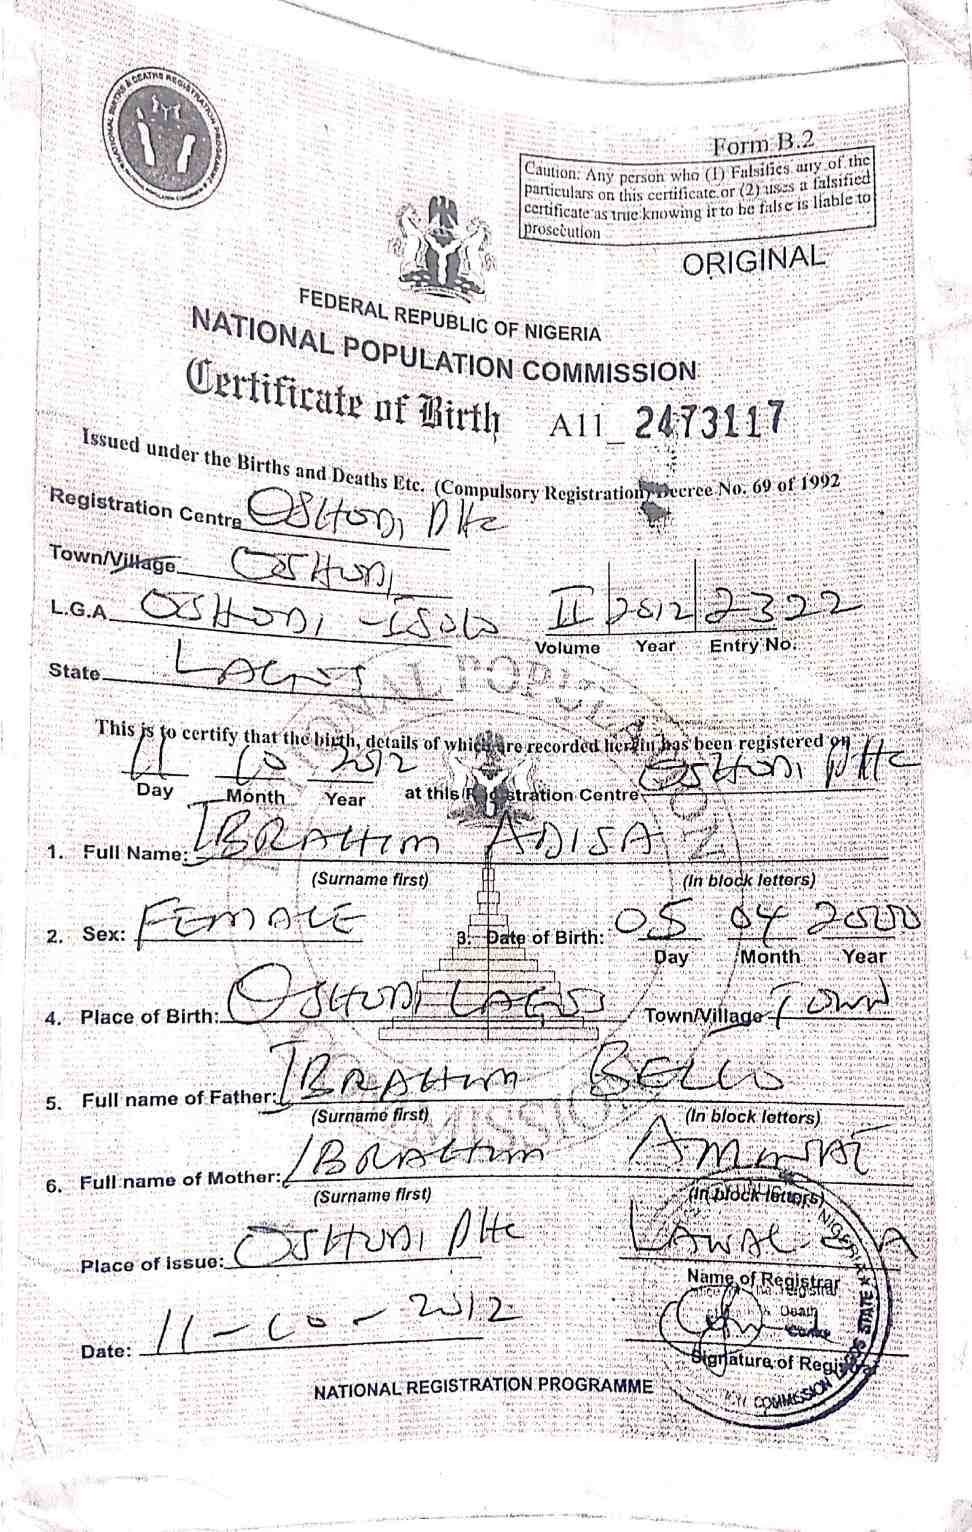 NATIONAL BIRTHS & DEATHS REGISTRATION PROGRAMME
Form B.2
Caution: Any person who (1) Falsifies any of the
particulars on this certificate or (2) uses a falsified
certificate as true knowing it to be false is liable to
prosecution
ORIGINAL
FEDERAL REPUBLIC OF NIGERIA
NATIONAL POPULATION COMMISSION
Certificate of Birth A11_ 2473117
Issued under the Births and Deaths Etc. (Compulsory Registration) Decree No. 69 of 1992
Registration Centre OSHODI PHC
Town/Village OSHODI
L.G.A. OSHODI - ISOLO II 2012 2322
Volume Year Entry No.
State LAGOS
This is to certify that the birth, details of which are recorded herein has been registered on
11 10 2012 at this Registration Centre OSHODI PHC
Day Month Year
1. Full Name: IBRAHIM ADISA
(Surname first) (In block letters)
2. Sex: FEMALE 3. Date of Birth: 05 04 2000
Day Month Year
4. Place of Birth: OSHODI LAGOS Town/Village TOWN
5. Full name of Father: IBRAHIM BELLO
(Surname first) (In block letters)
6. Full name of Mother: IBRAHIM
(Surname first) (In block letters)
Place of Issue: OSHODI PHC LAWAL
Name of Registrar
Date: 11-10-2012
Signature of Registrar
NATIONAL REGISTRATION PROGRAMME